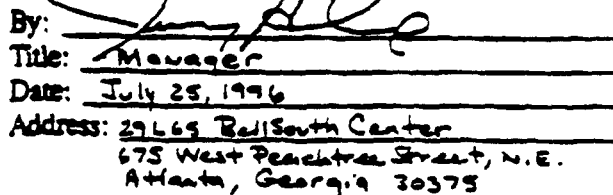 By:
Title: Manager
Date: July 25, 1996
Address: 29L65 BellSouth Center
675 West Peachtree Street, N.E.
Atlanta, Georgia 30375